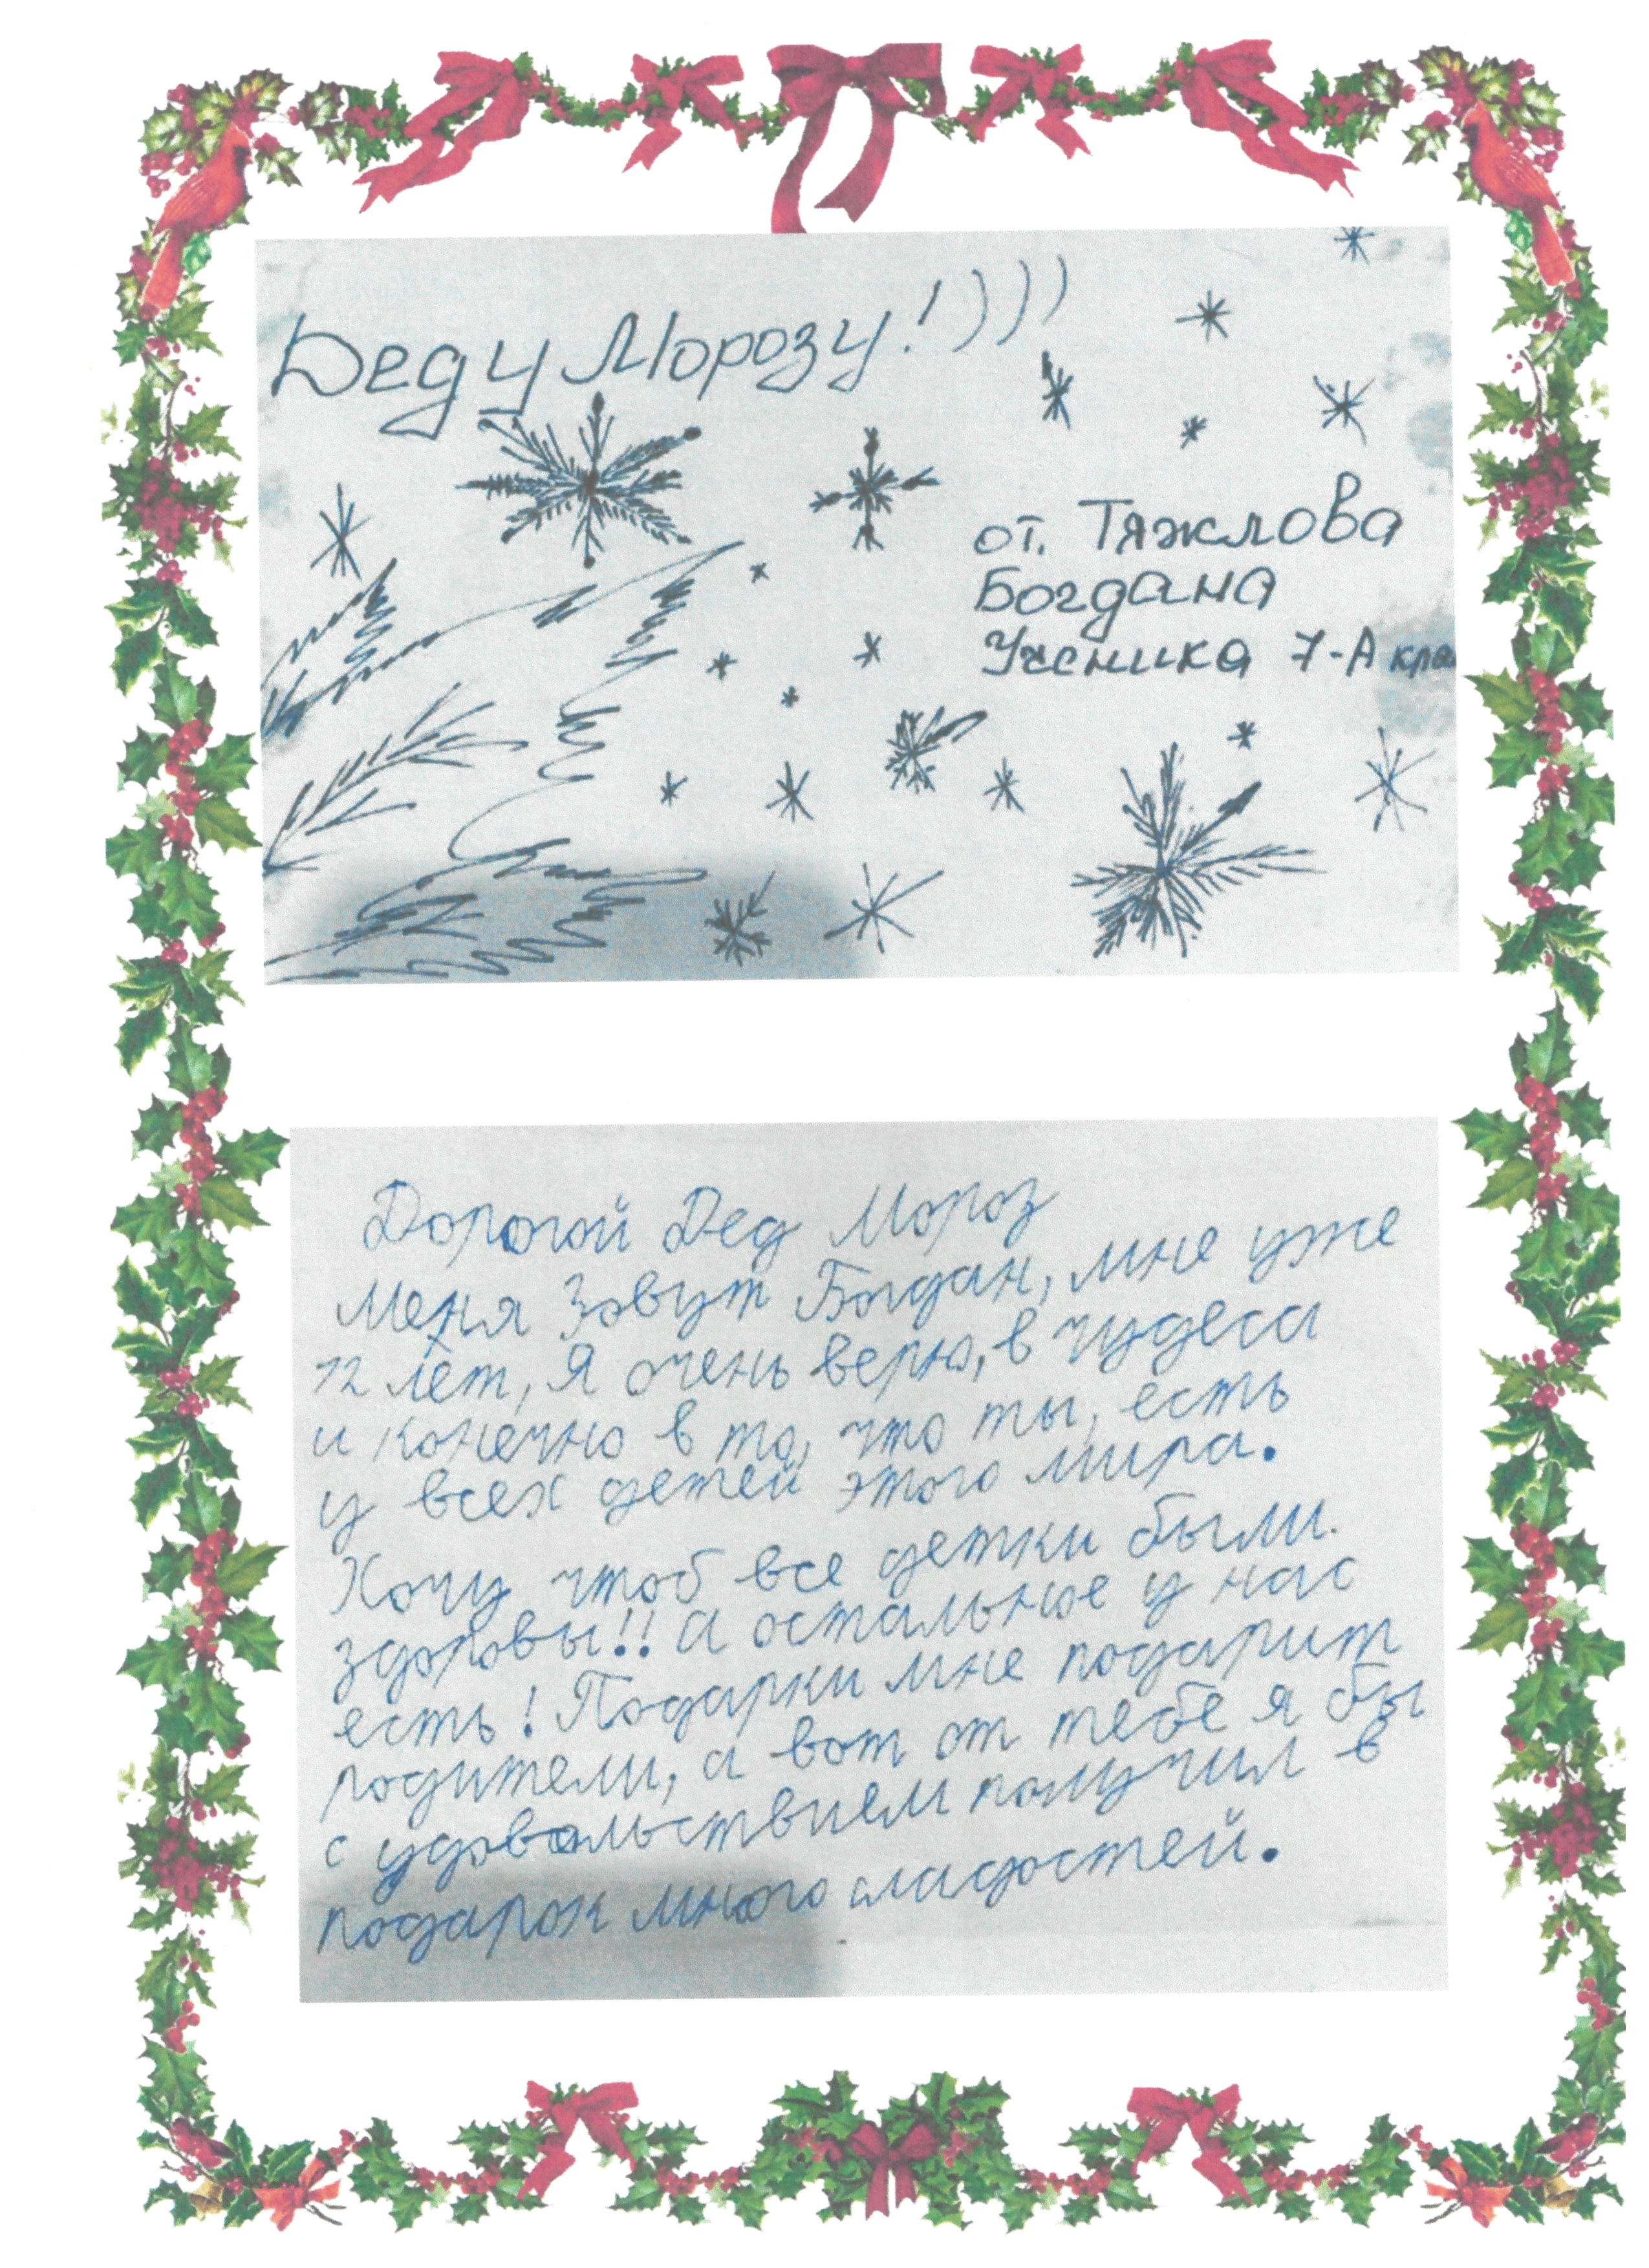 Деду Морозу!)))
от. Тяжлова
Богдана
Ученика 7-А кла
Дорогой Дед Мороз
Меня зовут Богдан, мне уже
12 лет, Я очень верю, в чудеса
и конечно в то, что ты, есть
у всех детей этого мира.
Хочу чтоб все детки были
здоровы!! А остальное у нас
есть! Подарки мне подарит
родители, а вот от тебе я бы
с удовольствием получил в
подарок много сладостей.